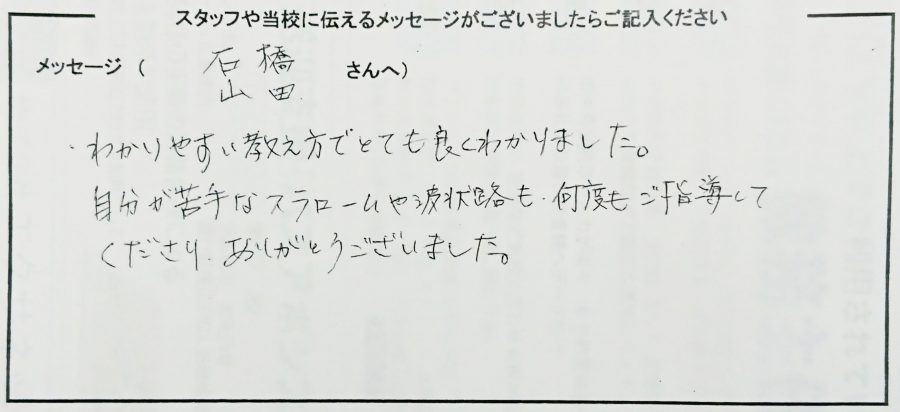 スタッフや当校に伝えるメッセージがございましたらご記入ください
メッセージ ( 石橋 さんへ)
山田
・わかりやすい教え方でとても良くわかりました。
自分が苦手なスラロームや波状路も、何度もご指導して
くださり、ありがとうございました。